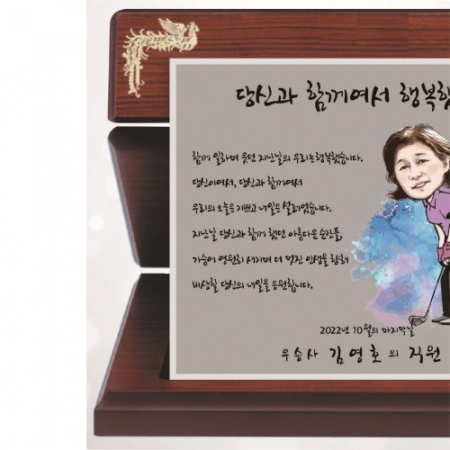 당신과 함께여서 행복합
함께 일하며 웃던 지난날의 우리는 행복했습니다.
당신이어서, 당신과 함께여서
우리의 오늘은 기쁘고 내일은 설레었습니다.
지난날 당신과 함께 했던 아름다운 순간들,
가슴에 영원히 새기며 더 멋진 인생을 향해
비상할 당신의 내일을 응원합니다.
2022년 10월의 마지막날
우승사 김영호 외 직원